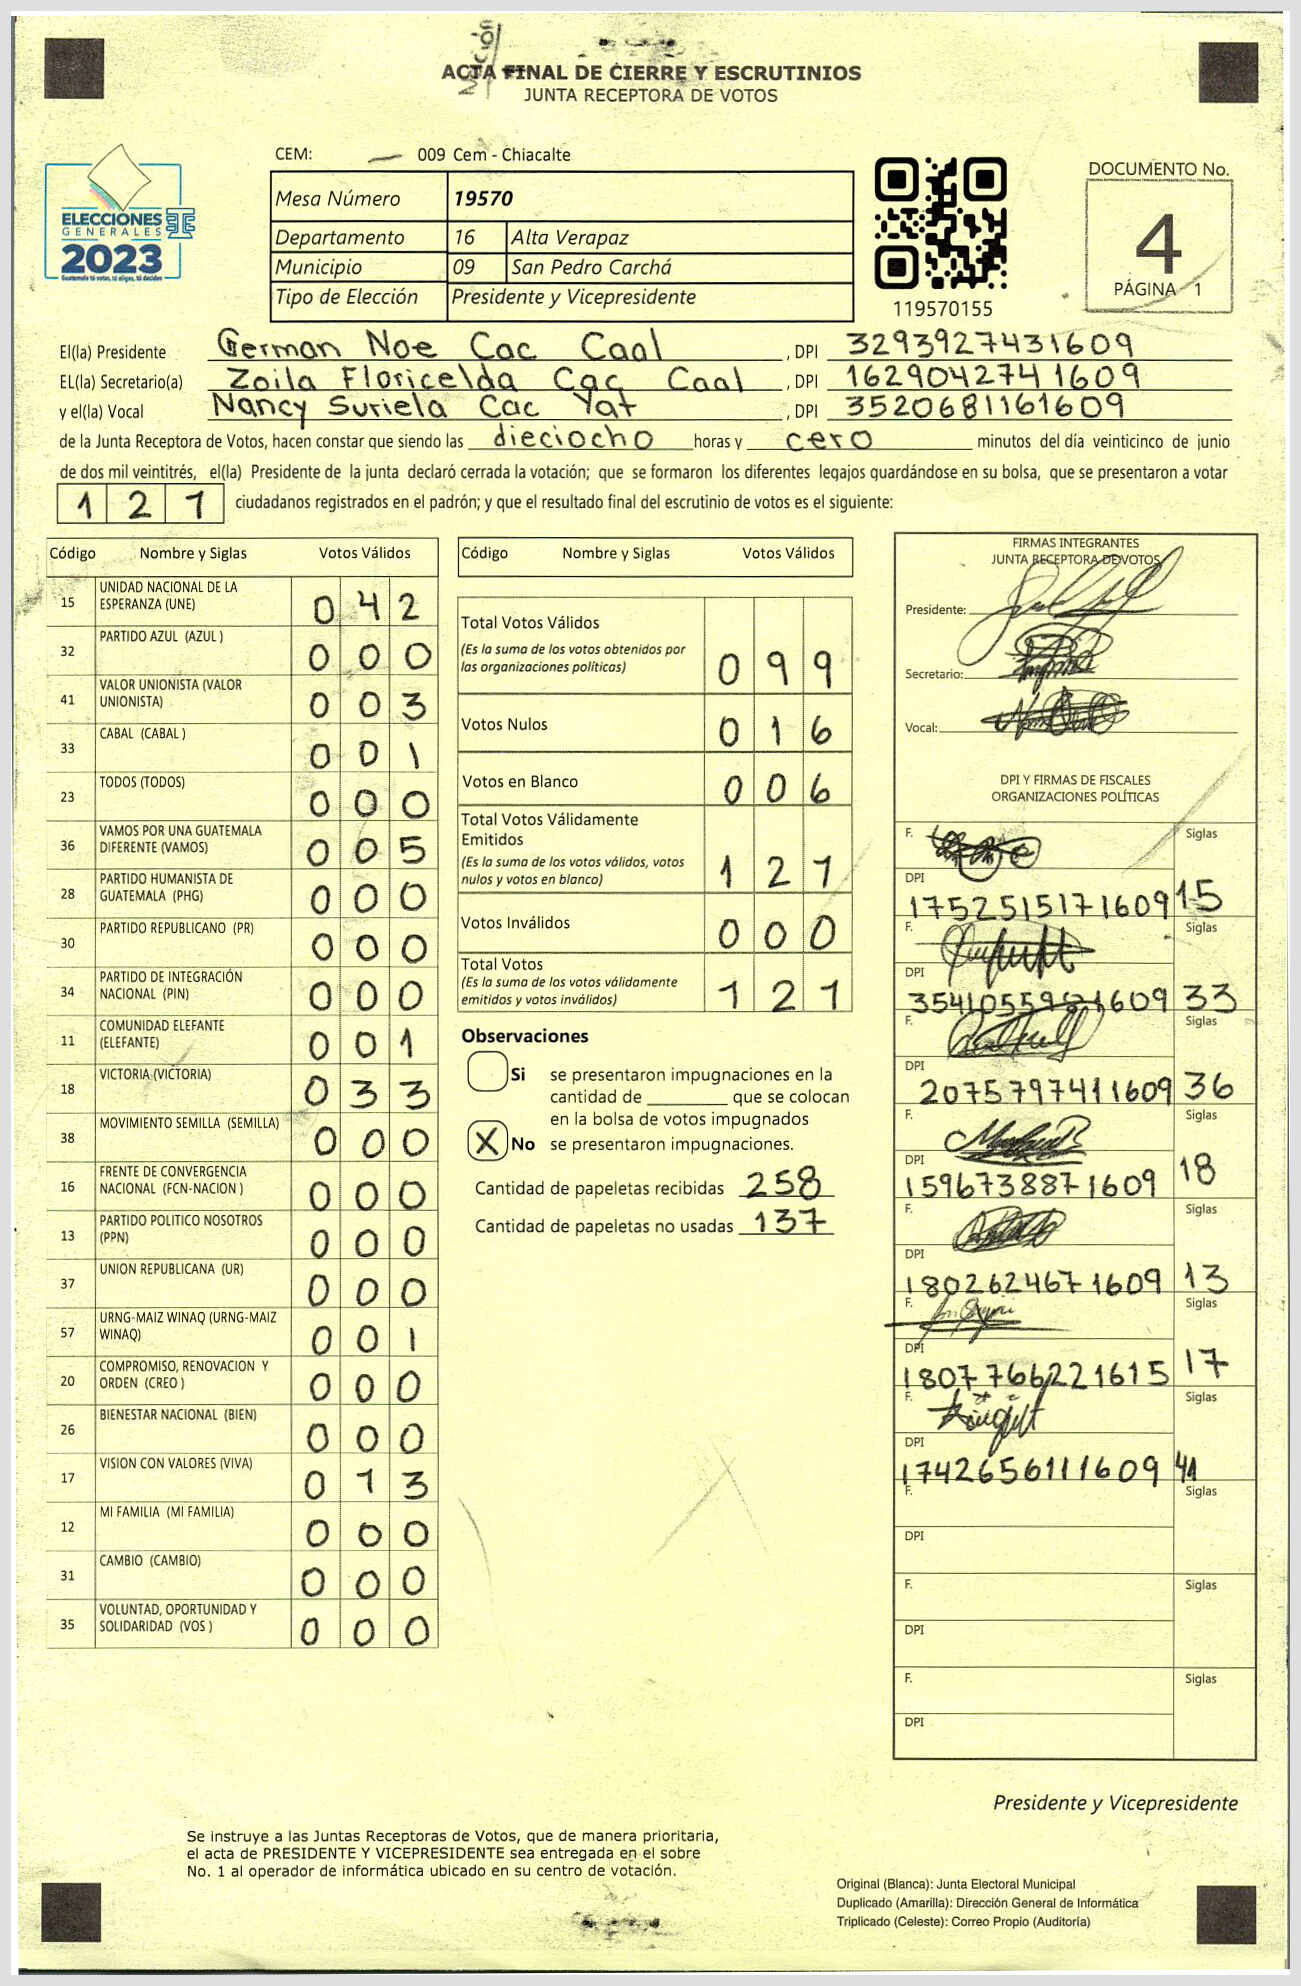 ACTA FINAL DE CIERRE Y ESCRUTINIOS
JUNTA RECEPTORA DE VOTOS
CEM: 009 Cem - Chiacalte
Mesa Número 19570
Departamento 16 Alta Verapaz
Municipio 09 San Pedro Carchá
Tipo de Elección Presidente y Vicepresidente
ELECCIONES
GENERALES
2023
Guatemala tú votas, tú eliges, tú decides
119570155
DOCUMENTO No.
4
PÁGINA 1
El(la) Presidente German Noe Cac Caal , DPI 3293927431609
EL(la) Secretario(a) Zoila Floricelda Cac Caal , DPI 1629042741609
y el(la) Vocal Nancy Suriela Cac Yat , DPI 3520681161609
de la Junta Receptora de Votos, hacen constar que siendo las dieciocho horas y cero minutos del día veinticinco de junio
de dos mil veintitrés, el(la) Presidente de la junta declaró cerrada la votación; que se formaron los diferentes legajos quardándose en su bolsa, que se presentaron a votar
1 2 1 ciudadanos registrados en el padrón; y que el resultado final del escrutinio de votos es el siguiente:
Código Nombre y Siglas Votos Válidos
15 UNIDAD NACIONAL DE LA ESPERANZA (UNE) 0 4 2
32 PARTIDO AZUL (AZUL ) 0 0 0
41 VALOR UNIONISTA (VALOR UNIONISTA) 0 0 3
33 CABAL (CABAL ) 0 0 1
23 TODOS (TODOS) 0 0 0
36 VAMOS POR UNA GUATEMALA DIFERENTE (VAMOS) 0 0 5
28 PARTIDO HUMANISTA DE GUATEMALA (PHG) 0 0 0
30 PARTIDO REPUBLICANO (PR) 0 0 0
34 PARTIDO DE INTEGRACIÓN NACIONAL (PIN) 0 0 0
11 COMUNIDAD ELEFANTE (ELEFANTE) 0 0 1
18 VICTORIA (VICTORIA) 0 3 3
38 MOVIMIENTO SEMILLA (SEMILLA) 0 0 0
16 FRENTE DE CONVERGENCIA NACIONAL (FCN-NACION ) 0 0 0
13 PARTIDO POLITICO NOSOTROS (PPN) 0 0 0
37 UNION REPUBLICANA (UR) 0 0 0
57 URNG-MAIZ WINAQ (URNG-MAIZ WINAQ) 0 0 1
20 COMPROMISO, RENOVACION Y ORDEN (CREO ) 0 0 0
26 BIENESTAR NACIONAL (BIEN) 0 0 0
17 VISION CON VALORES (VIVA) 0 1 3
12 MI FAMILIA (MI FAMILIA) 0 0 0
31 CAMBIO (CAMBIO) 0 0 0
35 VOLUNTAD, OPORTUNIDAD Y SOLIDARIDAD (VOS ) 0 0 0
Código Nombre y Siglas Votos Válidos
Total Votos Válidos
(Es la suma de los votos obtenidos por
las organizaciones políticas) 0 9 9
Votos Nulos 0 1 6
Votos en Blanco 0 0 6
Total Votos Válidamente
Emitidos
(Es la suma de los votos válidos, votos
nulos y votos en blanco) 1 2 1
Votos Inválidos 0 0 0
Total Votos
(Es la suma de los votos válidamente
emitidos y votos inválidos) 1 2 1
Observaciones
Si se presentaron impugnaciones en la
cantidad de ________ que se colocan
en la bolsa de votos impugnados
X No se presentaron impugnaciones.
Cantidad de papeletas recibidas 258
Cantidad de papeletas no usadas 137
FIRMAS INTEGRANTES
JUNTA RECEPTORA DE VOTOS
Presidente:
Secretario:
Vocal:
DPI Y FIRMAS DE FISCALES
ORGANIZACIONES POLÍTICAS
F. Siglas
DPI 1752515171609 15
F. Siglas
DPI 33
F. Siglas
DPI 2075797411609 36
F. Siglas
DPI 1596738871609 18
F. Siglas
DPI 1802624671609 13
F. Siglas
DPI 1807766221615 17
F. Siglas
DPI 1742656111609 41
F. Siglas
DPI
F. Siglas
DPI
F. Siglas
DPI
Presidente y Vicepresidente
Se instruye a las Juntas Receptoras de Votos, que de manera prioritaria,
el acta de PRESIDENTE Y VICEPRESIDENTE sea entregada en el sobre
No. 1 al operador de informática ubicado en su centro de votación.
Original (Blanca): Junta Electoral Municipal
Duplicado (Amarilla): Dirección General de Informática
Triplicado (Celeste): Correo Propio (Auditoría)